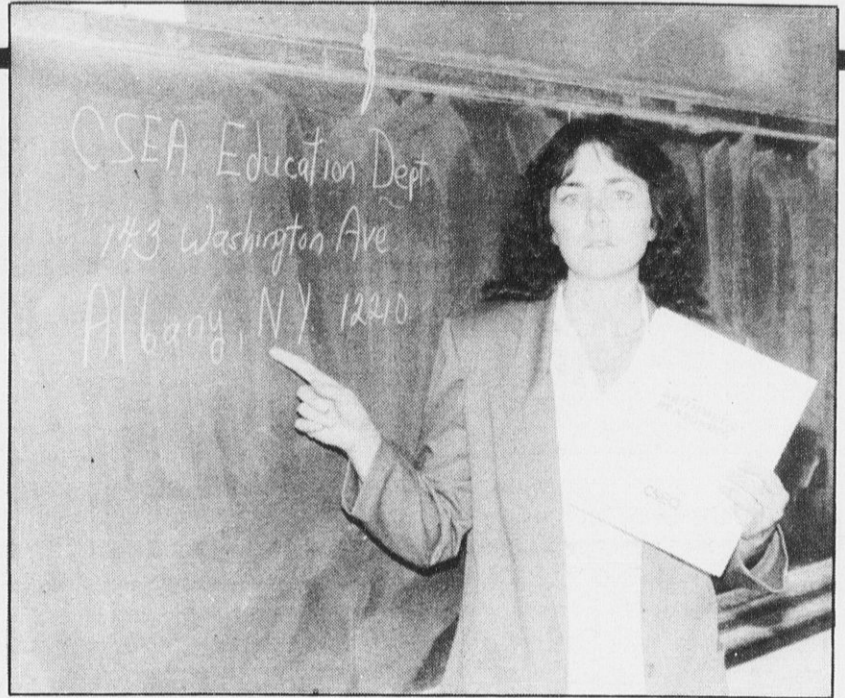 CSEA Education Dept
143 Washington Ave
Albany, NY 12210